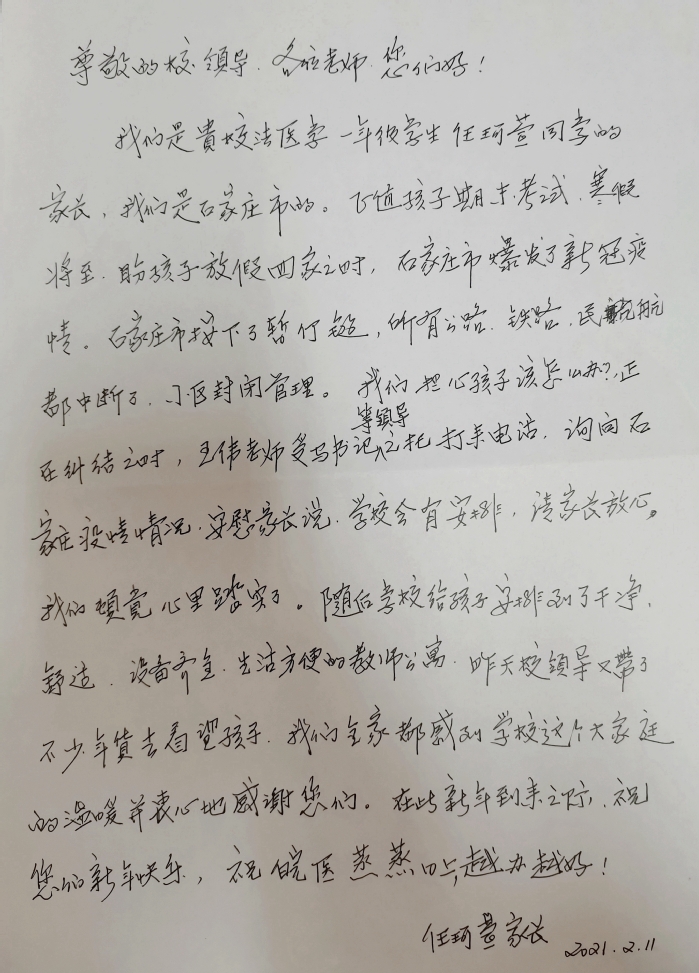 尊敬的校领导.各位老师.您们好!
我们是贵校法医学一年级学生任珂萱同学的
家长,我们是石家庄市的。正值孩子期末考试.寒假
将至.盼孩子放假回家之时,石家庄市爆发了新冠疫
情。石家庄市按下了暂停键,所有公路.铁路.民航
都中断了.小区封闭管理。我们担心孩子该怎么办?,正
在纠结之时,王伟老师受马书记等领导之托打来电话.询问石
家庄疫情情况.安慰家长说.学校会有安排,请家长放心。
我们顿觉心里踏实了。随后学校给孩子安排到了干净.
舒适.设备齐全.生活方便的教师公寓.昨天校领导又带了
不少年货去看望孩子.我们全家都感到学校这个大家庭
的温暖并衷心地感谢您们。在此新年到来之际,祝
您们新年快乐,祝皖医蒸蒸日上,越办越好!
任珂萱家长 2021.2.11